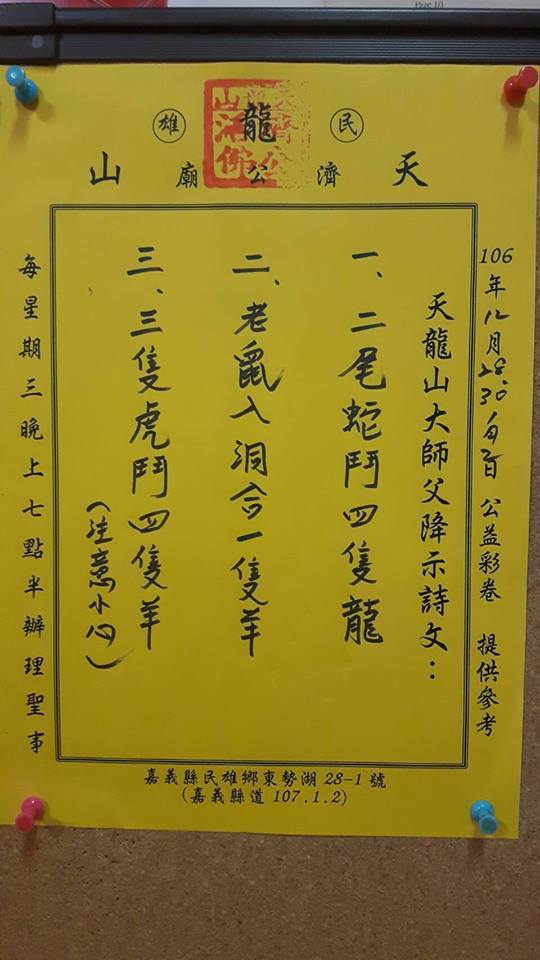 民龍雄
天濟公廟山
106年12月28.30 公益彩卷 提供參考
天龍山大師父降示詩文：
一、二尾蛇鬥四隻龍
二、老鼠入洞合一隻羊
三、三隻虎鬥四隻羊
（注意小心）
每星期三晚上七點半辦理聖事
嘉義縣民雄鄉東勢湖28-1號
(嘉義縣道107.1.2)